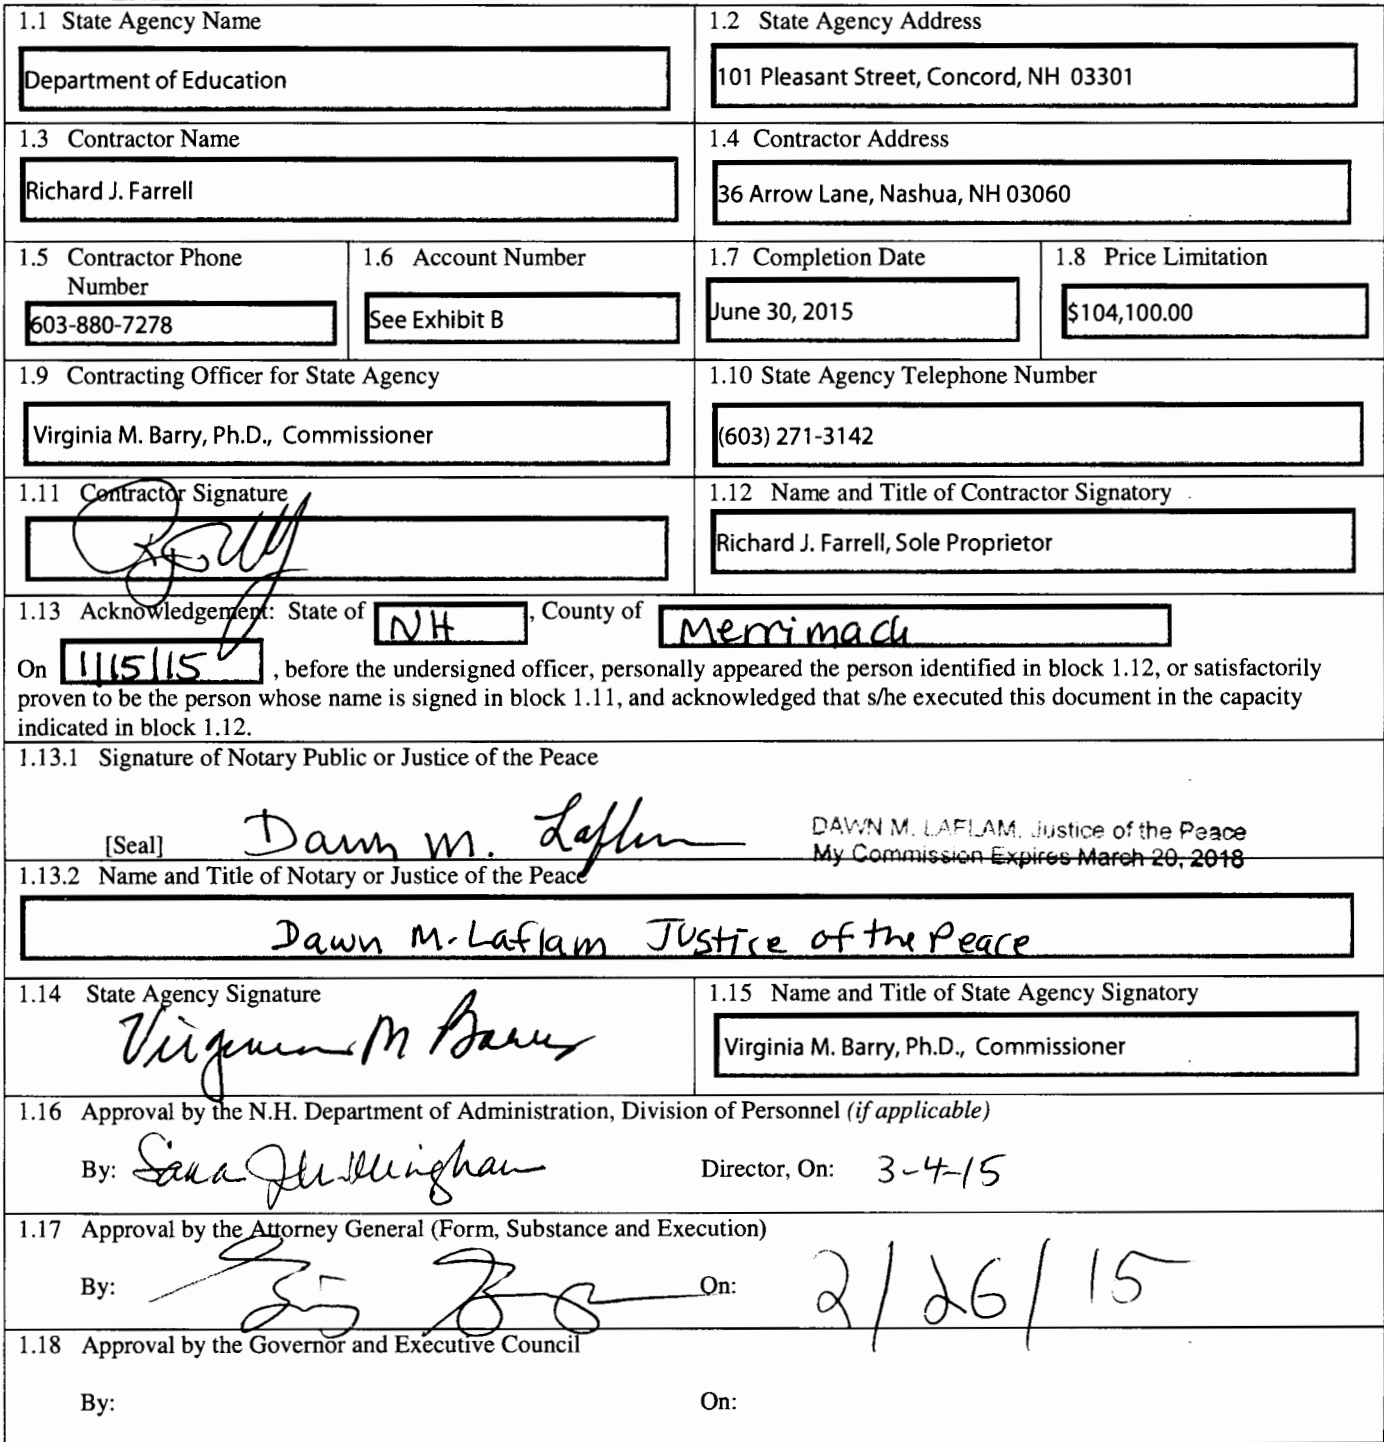 1.1 State Agency Name
Department of Education
1.2 State Agency Address
101 Pleasant Street, Concord, NH 03301
1.3 Contractor Name
Richard J. Farrell
1.4 Contractor Address
36 Arrow Lane, Nashua, NH 03060
1.5 Contractor Phone
Number
603-880-7278
1.6 Account Number
See Exhibit B
1.7 Completion Date
June 30, 2015
1.8 Price Limitation
$104,100.00
1.9 Contracting Officer for State Agency
Virginia M. Barry, Ph.D., Commissioner
1.10 State Agency Telephone Number
(603) 271-3142
1.11 Contractor Signature
1.12 Name and Title of Contractor Signatory
Richard J. Farrell, Sole Proprietor
1.13 Acknowledgement: State of NH, County of Merrimack
On 1/15/15, before the undersigned officer, personally appeared the person identified in block 1.12, or satisfactorily
proven to be the person whose name is signed in block 1.11, and acknowledged that s/he executed this document in the capacity
indicated in block 1.12.
1.13.1 Signature of Notary Public or Justice of the Peace
[Seal] Dawn M. Laflam
DAWN M. LAFLAM, Justice of the Peace
My Commission Expires March 20, 2018
1.13.2 Name and Title of Notary or Justice of the Peace
Dawn M. Laflam Justice of the Peace
1.14 State Agency Signature
Virginia M Barry
1.15 Name and Title of State Agency Signatory
Virginia M. Barry, Ph.D., Commissioner
1.16 Approval by the N.H. Department of Administration, Division of Personnel (if applicable)
By: Sara Director, On: 3-4-15
1.17 Approval by the Attorney General (Form, Substance and Execution)
By: On: 2/26/15
1.18 Approval by the Governor and Executive Council
By: On: